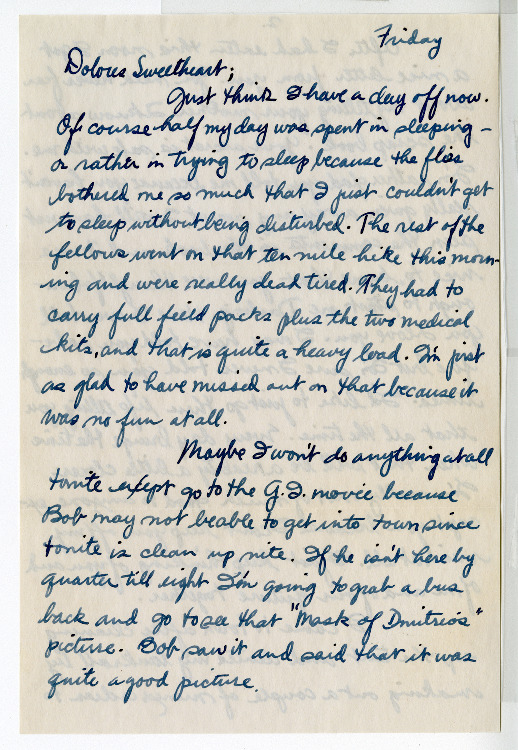 Friday
Dolores Sweetheart;
Just think I have a day off now.
Of course half my day was spent in sleeping –
or rather in trying to sleep because the flies
bothered me so much that I just couldn't get
to sleep without being disturbed. The rest of the
fellows went on that ten mile hike this morn-
ing and were really dead tired. They had to
carry full field packs plus the two medical
kits, and that is quite a heavy load. I'm just
as glad to have missed out on that because it
was no fun at all.
Maybe I won't do anything at all
tonite except go to the G.I. movie because
Bob may not be able to get into town since
tonite is clean up nite. If he isn't here by
quarter till eight I'm going to grab a bus
back and go to see that "Mask of Dmitrios"
picture. Bob saw it and said that it was
quite a good picture.